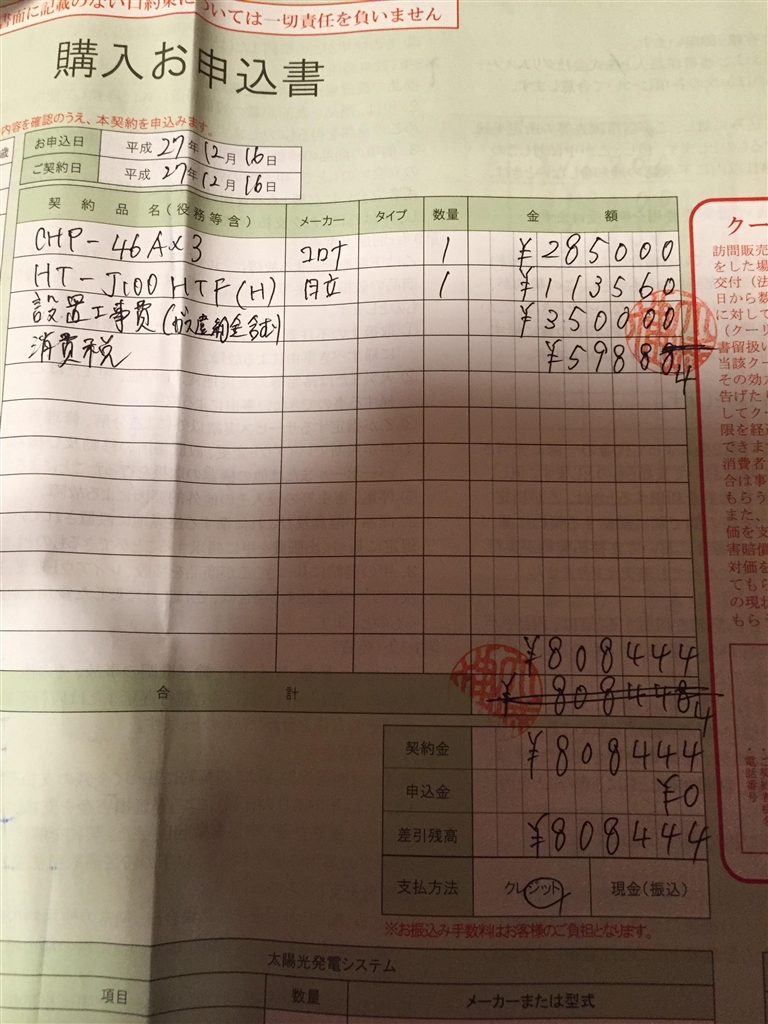 書面に記載のない口約束については一切責任を負いません
購入お申込書
内容を確認のうえ、本契約を申込みます。
お申込日 平成27年12月16日
ご契約日 平成27年12月16日
契約品名(役務等含) メーカー タイプ 数量 金額
CHP-46A×3 コロナ 1 ¥285000
HT-J100HTF(H) 日立 1 ¥113560
設置工事費(ガス撤去含む) ¥350000
消費税 ¥59884
¥808444
合計 ¥808484
契約金 ¥808444
申込金 ¥0
差引残高 ¥808444
支払方法 クレジット 現金(振込)
※お振込み手数料はお客様のご負担となります。
太陽光発電システム
項目 数量 メーカーまたは型式
クー
訪問販売
をした場
交付(法
日から数
に対して
(クーリ
書留扱い
当該クー
その効力
告げたり
してクー
限を経過
できます
消費者
合は事
もらう
また、
価を支
害賠償
対価を
てもら
の現状
もらう
電話番号